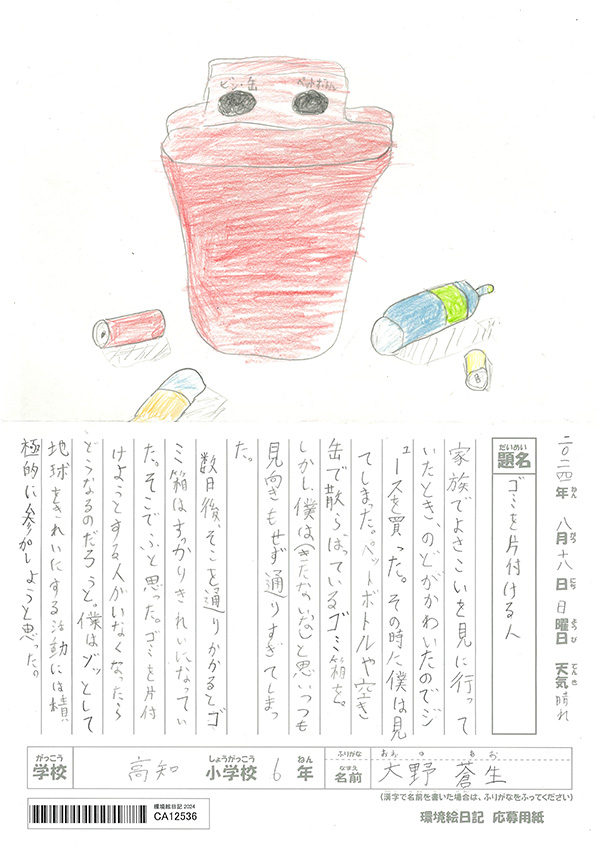 ビン・缶
ペットボトル
二〇二四年 八月十八日 日曜日 天気 晴れ
ねん がつ にち ようび てんき
だいめい
題名
ゴミを片付ける人
家族でよさこいを見に行って
いたとき、のどがかわいたのでジ
ュースを買った。その時に僕は見
てしまった。ペットボトルや空き
缶で散らばっているゴミ箱を。
しかし、僕は(きたないな)と思いつつも
見向きもせず通りすぎてしまっ
た。
数日後、そこを通りかかるとゴ
ミ箱はすっかりきれいになってい
た。そこでふと思った。ゴミを片付
けようとする人がいなくなったら
どうなるのだろうと。僕はゾッとして
地球をきれいにする活動には積
極的に参加しようと思った。
がっこう しょうがっこう ねん ふりがな おおの あお
学校 高知 小学校 6年 なまえ 名前 大野 蒼生
(漢字で名前を書いた場合は、ふりがなをふってください)
環境絵日記2024
CA12536
環境絵日記 応募用紙